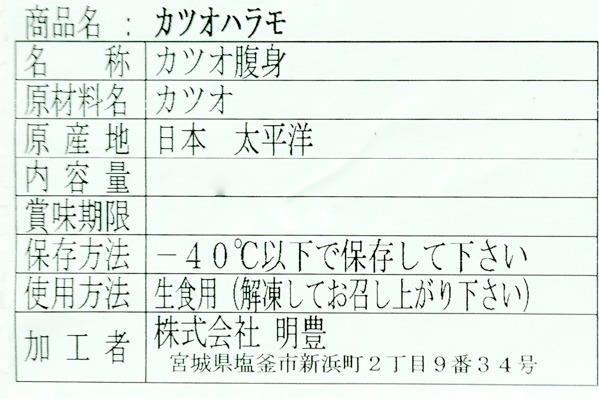 商品名：カツオハラモ
名称 カツオ腹身
原材料名 カツオ
原産地 日本　太平洋
内容量
賞味期限
保存方法 －４０℃以下で保存して下さい
使用方法 生食用（解凍してお召し上がり下さい）
加工者 株式会社 明豊
宮城県塩釜市新浜町２丁目９番３４号